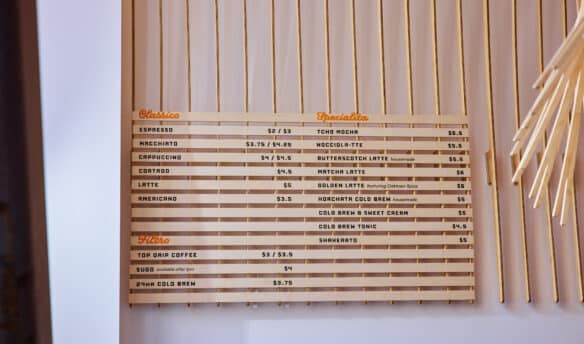 Classico
ESPRESSO $2 / $3
MACCHIATO $3.75 / $4.25
CAPPUCCINO $4 / $4.5
CORTADO $4.5
LATTE $5
AMERICANO $3.5
Filtro
TOP DRIP COFFEE $3 / $3.5
SUGO available after 2pm $4
24HR COLD BREW $3.75
Specialita
TCHO MOCHA $5.5
NOCCIOLA-TTE $5.5
BUTTERSCOTCH LATTE housemade $5.5
MATCHA LATTE $6
GOLDEN LATTE featuring Oaktown Spice $5
HORCHATA COLD BREW housemade $5
COLD BREW & SWEET CREAM $5
COLD BREW TONIC $4.5
SHAKERATO $5